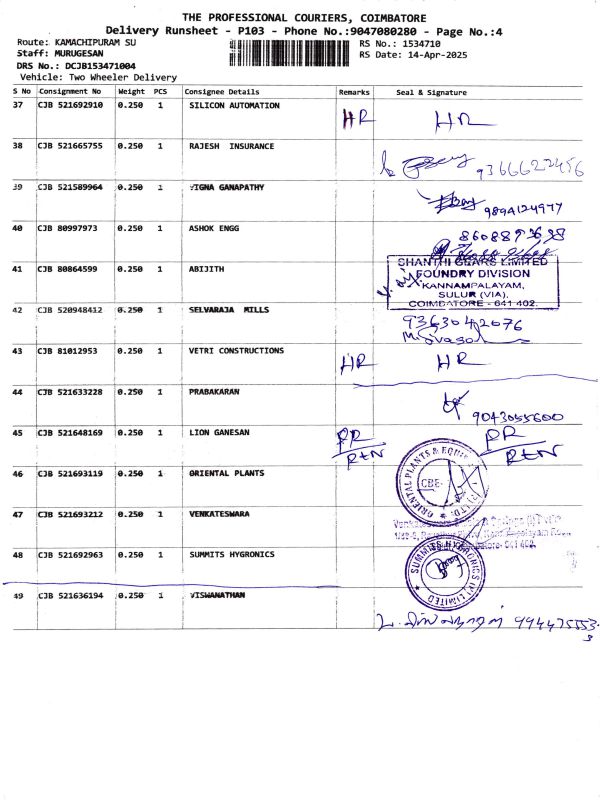 THE PROFESSIONAL COURIERS, COIMBATORE
Delivery Runsheet - P103 - Phone No.:9047080280 - Page No.:4
Route: KAMACHIPURAM SU
RS No.: 1534710
Staff: MURUGESAN
RS Date: 14-Apr-2025
DRS No.: DCJB153471004
Vehicle: Two Wheeler Delivery
S No Consignment No Weight PCS Consignee Details Remarks Seal & Signature
37 CJB 521692910 0.250 1 SILICON AUTOMATION HR HR
38 CJB 521665755 0.250 1 RAJESH INSURANCE
9366622456
39 CJB 521589964 0.250 1 VIGNA GANAPATHY
9894124977
40 CJB 80997973 0.250 1 ASHOK ENGG
41 CJB 80864599 0.250 1 ABIJITH
SHANTHI GEARS LIMITED
FOUNDRY DIVISION
KANNAMPALAYAM,
SULUR (VIA),
COIMBATORE - 641 402.
42 CJB 520948412 0.250 1 SELVARAJA MILLS
9363042076
43 CJB 81012953 0.250 1 VETRI CONSTRUCTIONS HR HR
44 CJB 521633228 0.250 1 PRABAKARAN
9043055600
45 CJB 521648169 0.250 1 LION GANESAN PR PR
RTN RTN
46 CJB 521693119 0.250 1 ORIENTAL PLANTS
ORIENTAL PLANTS & EQUIP (P) LTD.
CBE-
47 CJB 521693212 0.250 1 VENKATESWARA
48 CJB 521692963 0.250 1 SUMMITS HYGRONICS
SUMMITS HYGRONICS (P) LIMITED
49 CJB 521636194 0.250 1 VISWANATHAN
9944755533